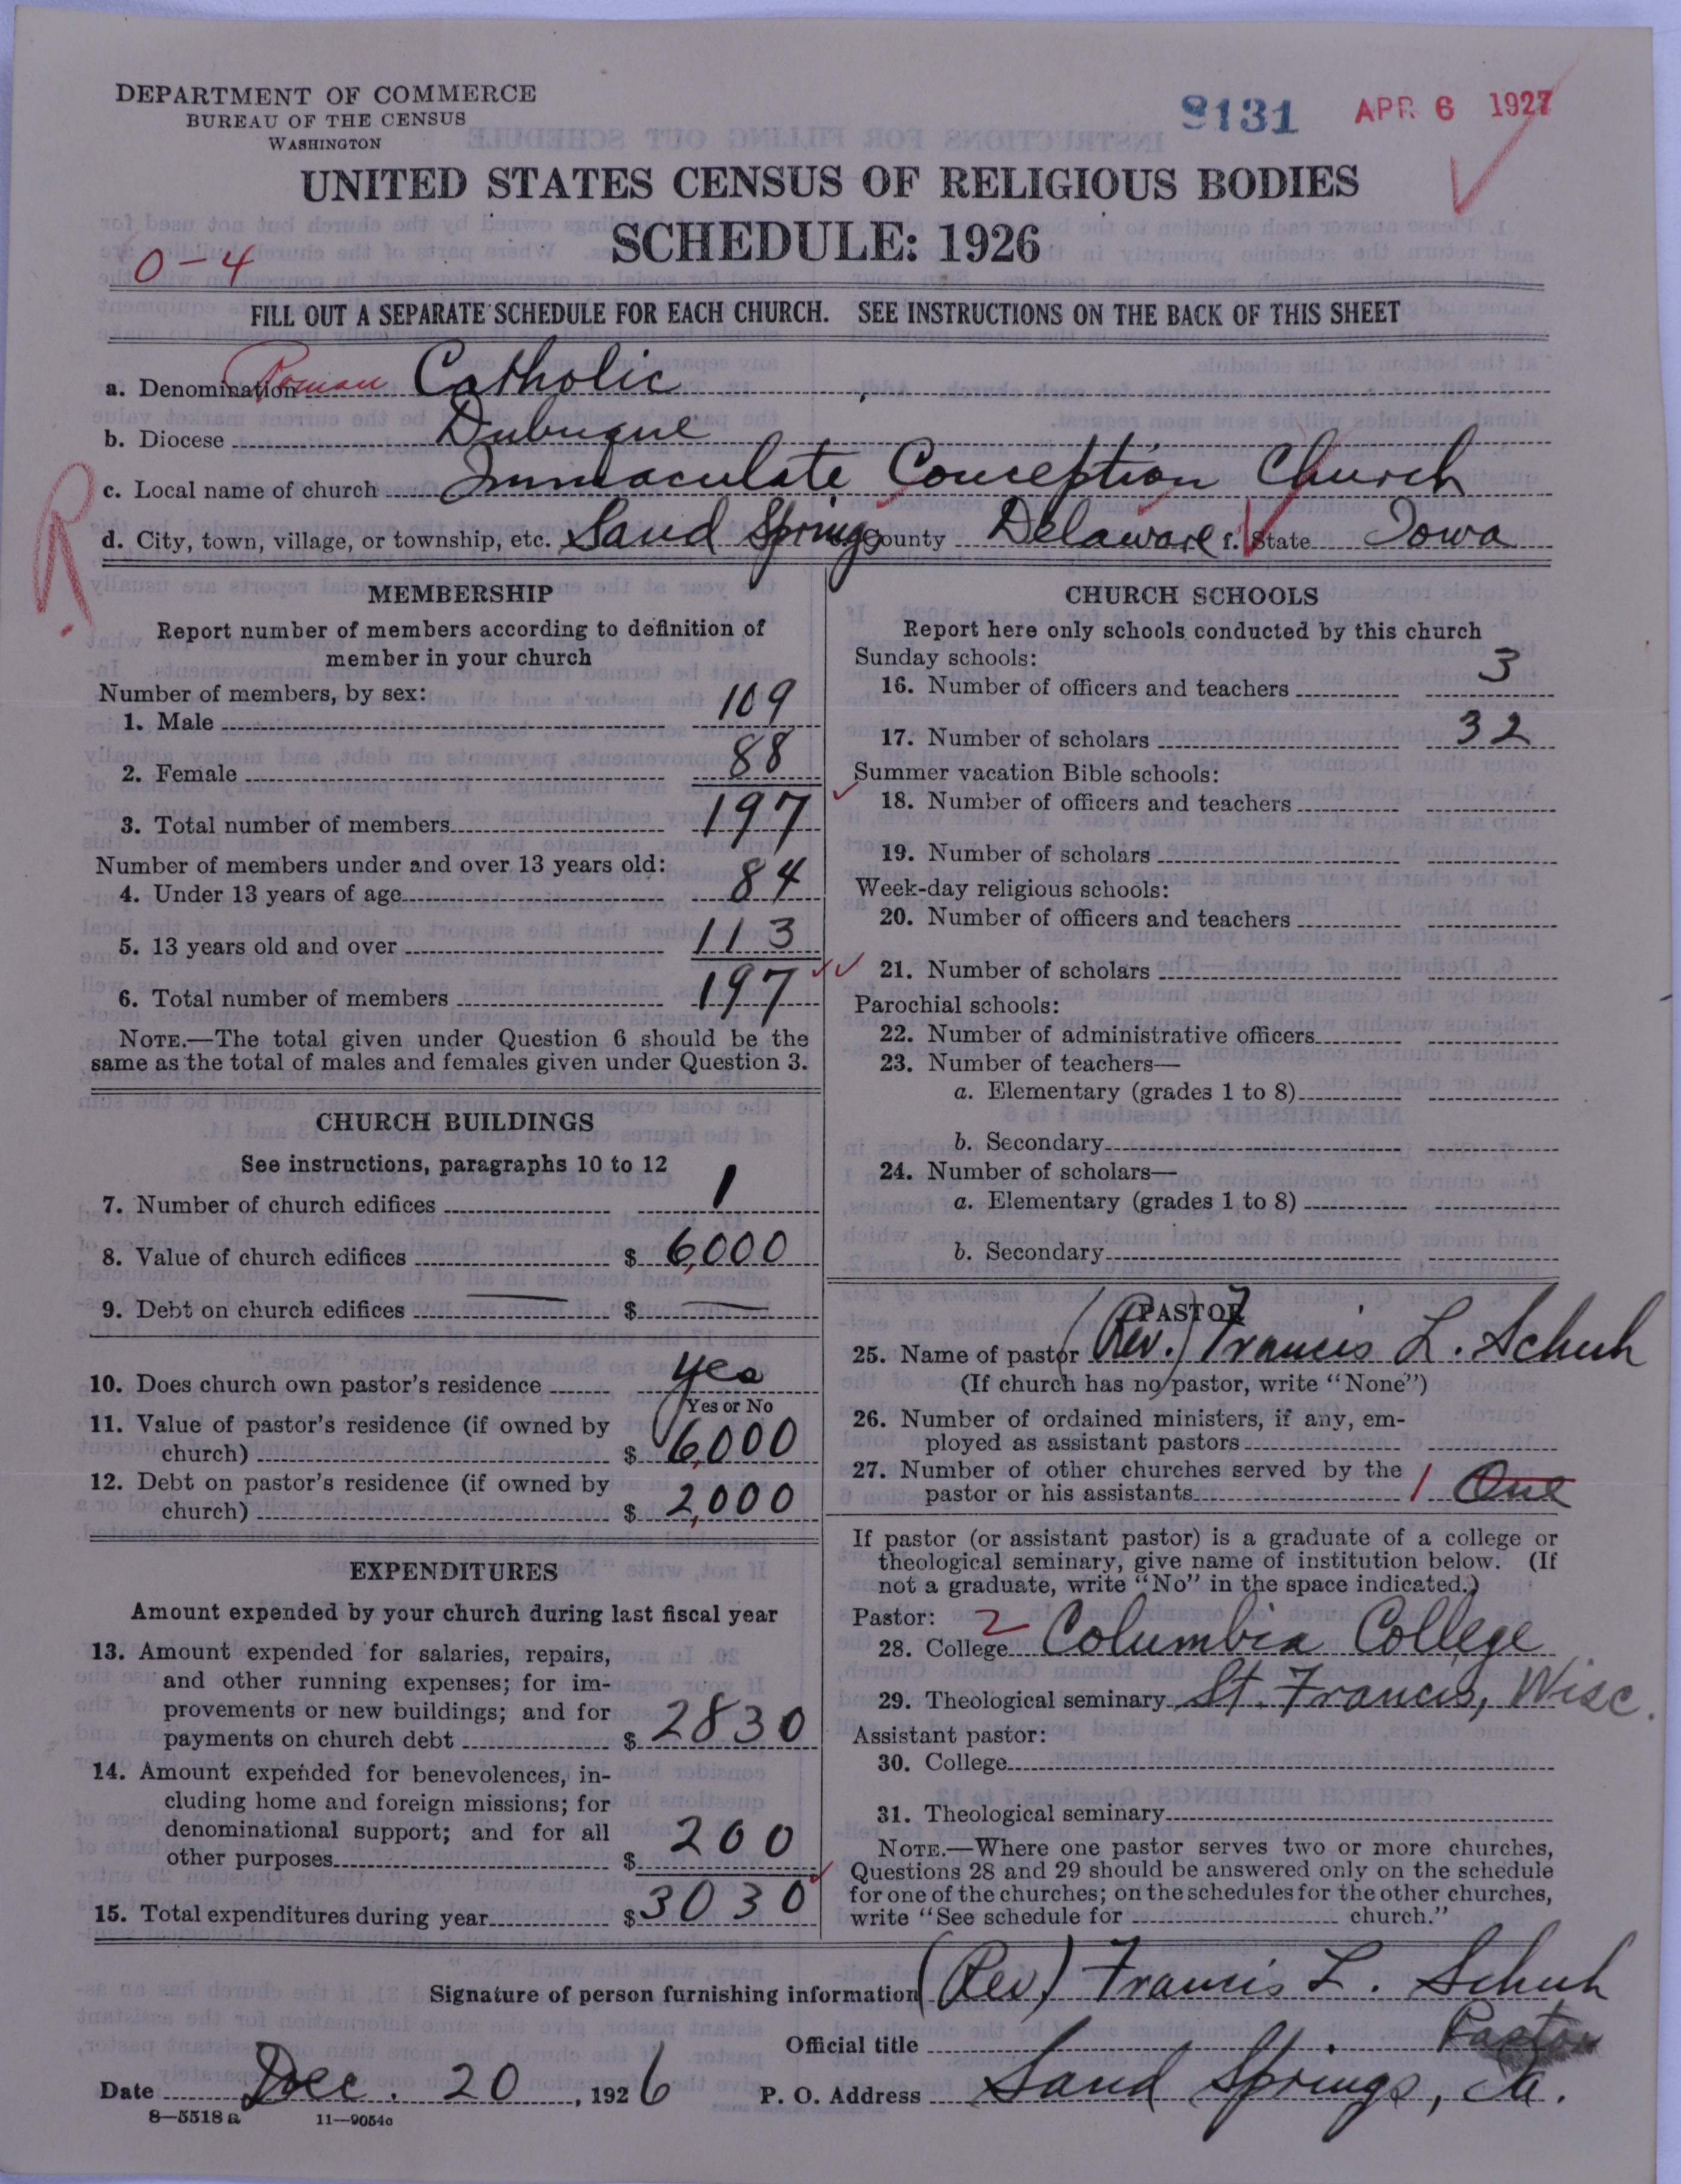 DEPARTMENT OF COMMERCE
BUREAU OF THE CENSUS
WASHINGTON
9131 APR 6 1927
UNITED STATES CENSUS OF RELIGIOUS BODIES
SCHEDULE: 1926
0-4
FILL OUT A SEPARATE SCHEDULE FOR EACH CHURCH. SEE INSTRUCTIONS ON THE BACK OF THIS SHEET
a. Denomination Roman Catholic
b. Diocese Dubuque
c. Local name of church Immaculate Conception Church
R
d. City, town, village, or township, etc. Sand Springs County Delaware f. State Iowa
MEMBERSHIP
Report number of members according to definition of
member in your church
Number of members, by sex:
1. Male 109
2. Female 88
3. Total number of members 197
Number of members under and over 13 years old:
4. Under 13 years of age 84
5. 13 years old and over 113
6. Total number of members 197
NOTE.—The total given under Question 6 should be the
same as the total of males and females given under Question 3.
CHURCH BUILDINGS
See instructions, paragraphs 10 to 12
7. Number of church edifices 1
8. Value of church edifices $ 6,000
9. Debt on church edifices — $ —
10. Does church own pastor's residence yes
Yes or No
11. Value of pastor's residence (if owned by
church) $ 6,000
12. Debt on pastor's residence (if owned by
church) $ 2,000
EXPENDITURES
Amount expended by your church during last fiscal year
13. Amount expended for salaries, repairs,
and other running expenses; for im-
provements or new buildings; and for
payments on church debt $ 2830
14. Amount expended for benevolences, in-
cluding home and foreign missions; for
denominational support; and for all
other purposes $ 200
15. Total expenditures during year $ 3030
CHURCH SCHOOLS
Report here only schools conducted by this church
Sunday schools:
16. Number of officers and teachers 3
17. Number of scholars 32
Summer vacation Bible schools:
18. Number of officers and teachers
19. Number of scholars
Week-day religious schools:
20. Number of officers and teachers
21. Number of scholars
Parochial schools:
22. Number of administrative officers
23. Number of teachers—
a. Elementary (grades 1 to 8)
b. Secondary
24. Number of scholars—
a. Elementary (grades 1 to 8)
b. Secondary
PASTOR
25. Name of pastor (Rev.) Francis L. Schuh
(If church has no pastor, write "None")
26. Number of ordained ministers, if any, em-
ployed as assistant pastors
27. Number of other churches served by the
pastor or his assistants 1 One
If pastor (or assistant pastor) is a graduate of a college or
theological seminary, give name of institution below. (If
not a graduate, write "No" in the space indicated.)
Pastor: 2
28. College Columbia College
29. Theological seminary St Francis, Wisc.
Assistant pastor:
30. College
31. Theological seminary
NOTE.—Where one pastor serves two or more churches,
Questions 28 and 29 should be answered only on the schedule
for one of the churches; on the schedules for the other churches,
write "See schedule for church."
Signature of person furnishing information (Rev) Francis L. Schuh
Official title Pastor
Date Dec. 20, 1926 P. O. Address Sand Springs, Ia.
8—5518 a 11—9054c